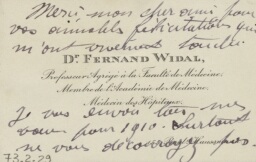 Merci, mon cher ami, pour
vos aimables félicitations qui
m'ont vivement touché.
Dr. FERNAND WIDAL,
Professeur Agrégé à la Faculté de Médecine,
Membre de l'Académie de Médecine,
Médecin des Hôpitaux.
Je vous envoie tous mes
vœux pour 1910. Surtout
ne vous découragez pas.
Haussmann
73.2.29